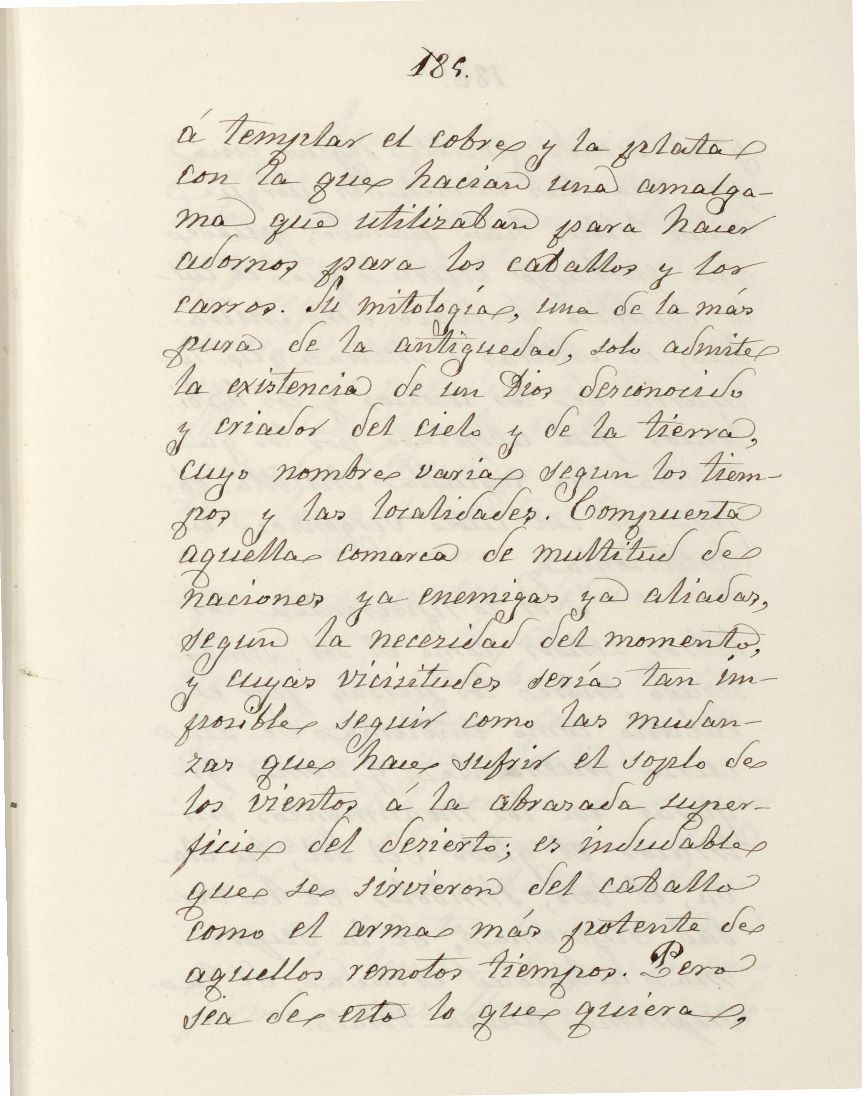 185.
á templar el cobre y la plata
con la que hacian una amalga-
ma que utilizaban para hacer
adornos para los caballos y los
carros. Su mitología, una de la más
pura de la antiguedad, solo admite
la existencia de un Dios desconocido
y criador del cielo y de la tierra,
cuyo nombre varia segun los tiem-
pos y las localidades. Compuesta
aquella comarca de multitud de
naciones ya enemigas ya aliadas,
segun la necesidad del momento,
y cuyas vicisitudes sería tan im-
posible seguir como las mudan-
zas que hace sufrir el soplo de
los vientos á la abrasada super-
ficie del desierto; es indudable
que se sirvieron del caballo
como el arma más potente de
aquellos remotos tiempos. Pero
sea de esto lo que quiera,